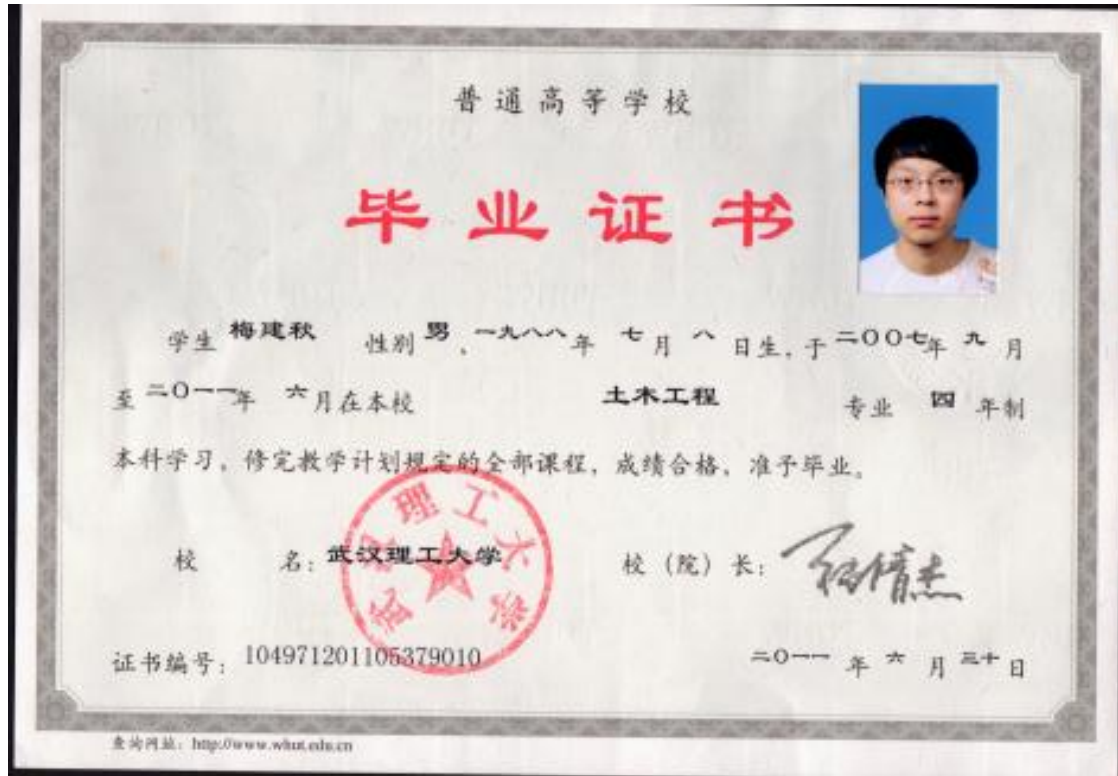 普通高等学校
毕业证书
学生 梅建秋 性别 男、一九八八年 七月 八 日生，于二〇〇七年 九 月
至二〇一一年 六月在本校 土木工程 专业 四 年制
本科学习，修完教学计划规定的全部课程，成绩合格，准予毕业。
校 名：武汉理工大学 校（院）长：
武汉理工大学
证书编号：104971201105379010 二〇一一 年 六 月 三十 日
查询网址：http://www.whut.edu.cn